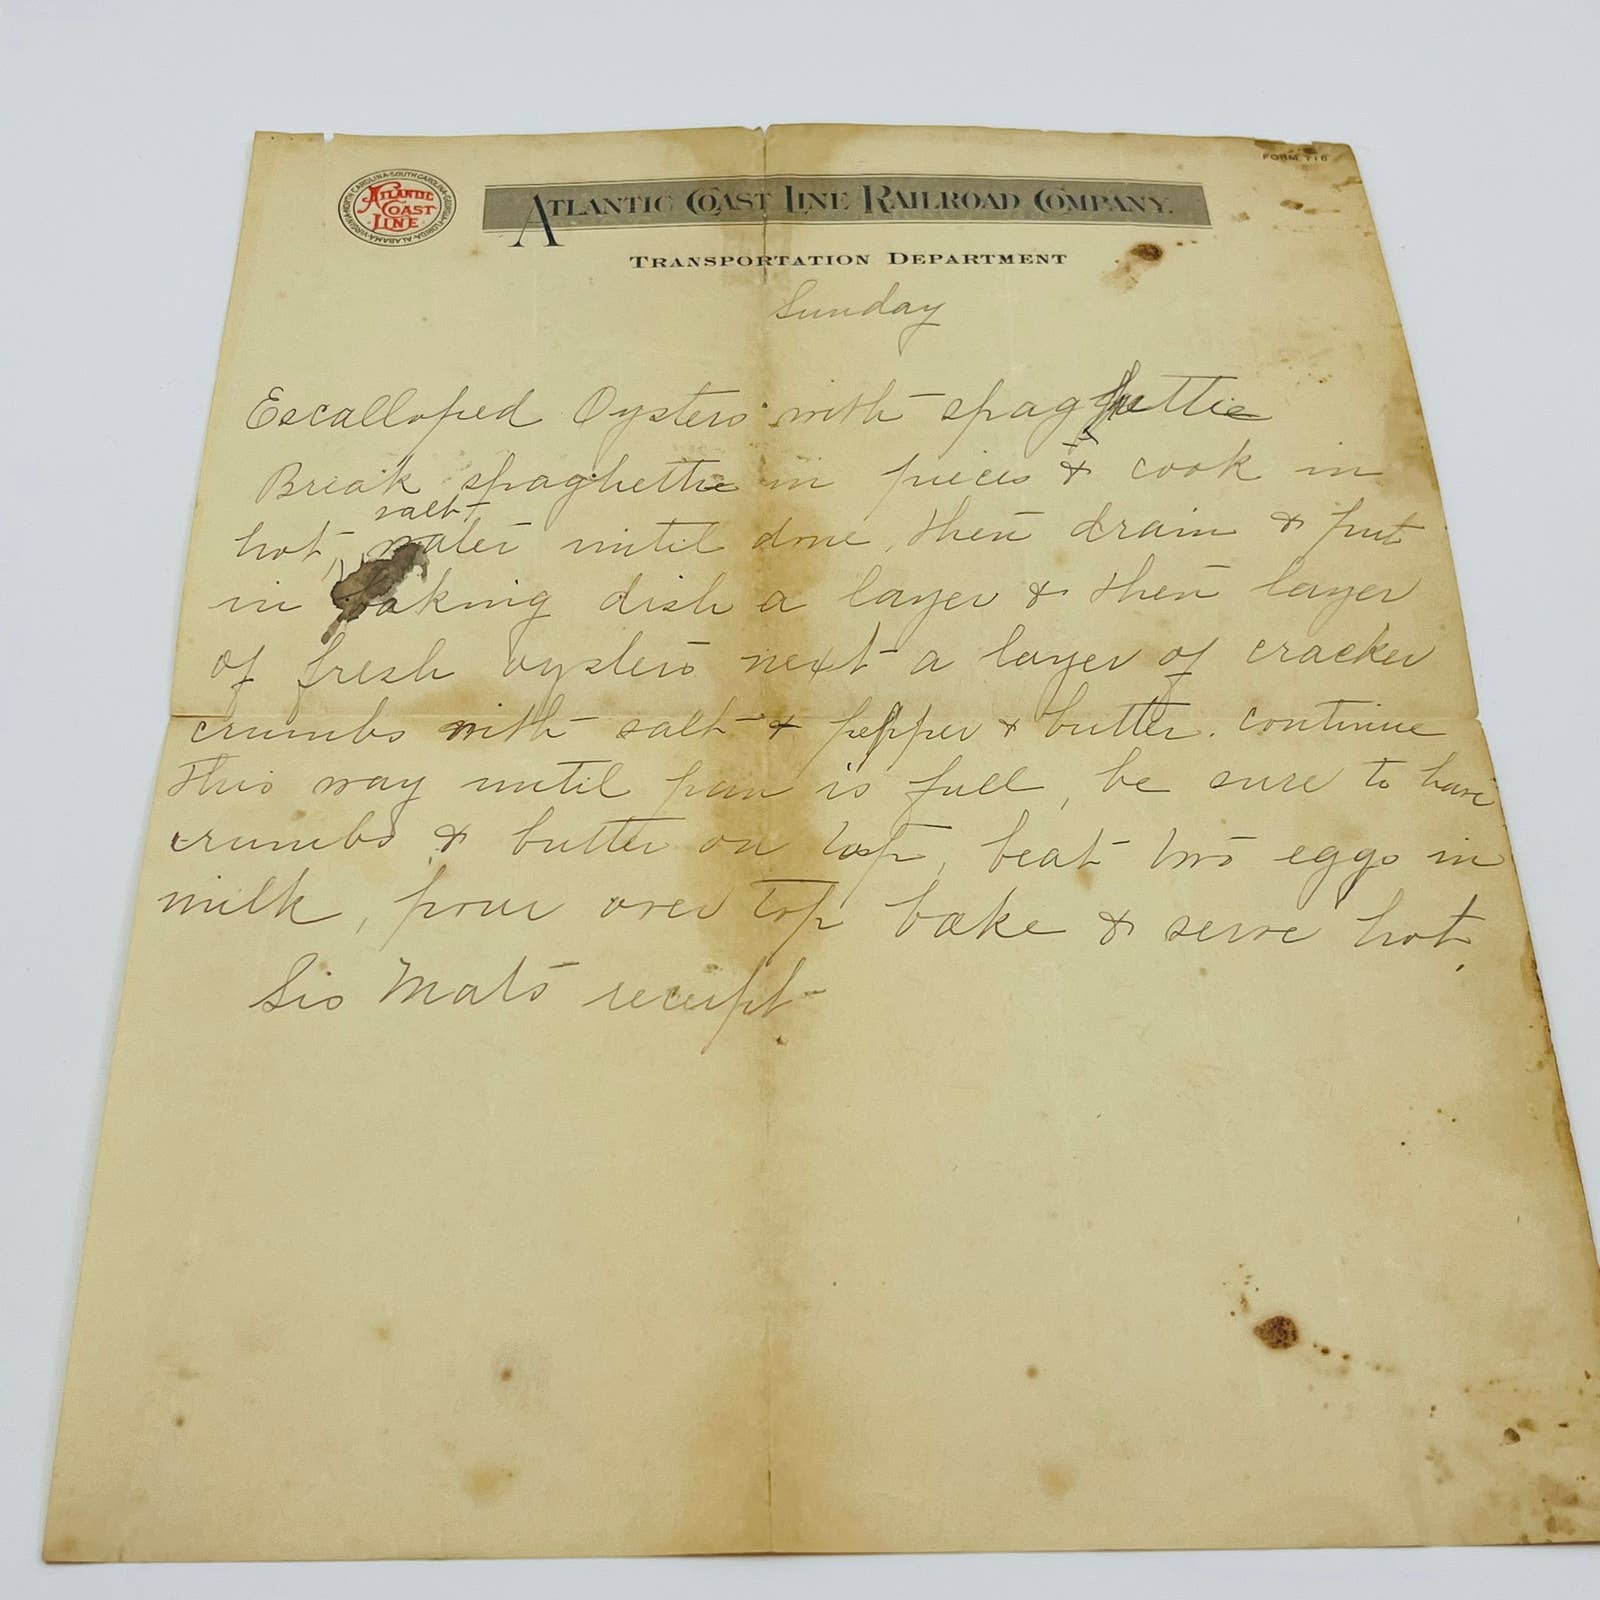 FORM 716
NORTH CAROLINA · SOUTH CAROLINA · GEORGIA · FLORIDA · ALABAMA · VIRGINIA
ATLANTIC
COAST
LINE
ATLANTIC COAST LINE RAILROAD COMPANY.
TRANSPORTATION DEPARTMENT
Sunday
Escalloped Oysters with spaghettie
Break spaghettie in pieces & cook in
salt
hot, water until done, then drain & put
in baking dish a layer & then layer
of fresh oysters next a layer of cracker
crumbs with salt & pepper & butter. continue
this way until pan is full, be sure to have
crumbs & butter on top, beat two eggs in
milk, pour over top bake & serve hot.
Sis Mat's receipt